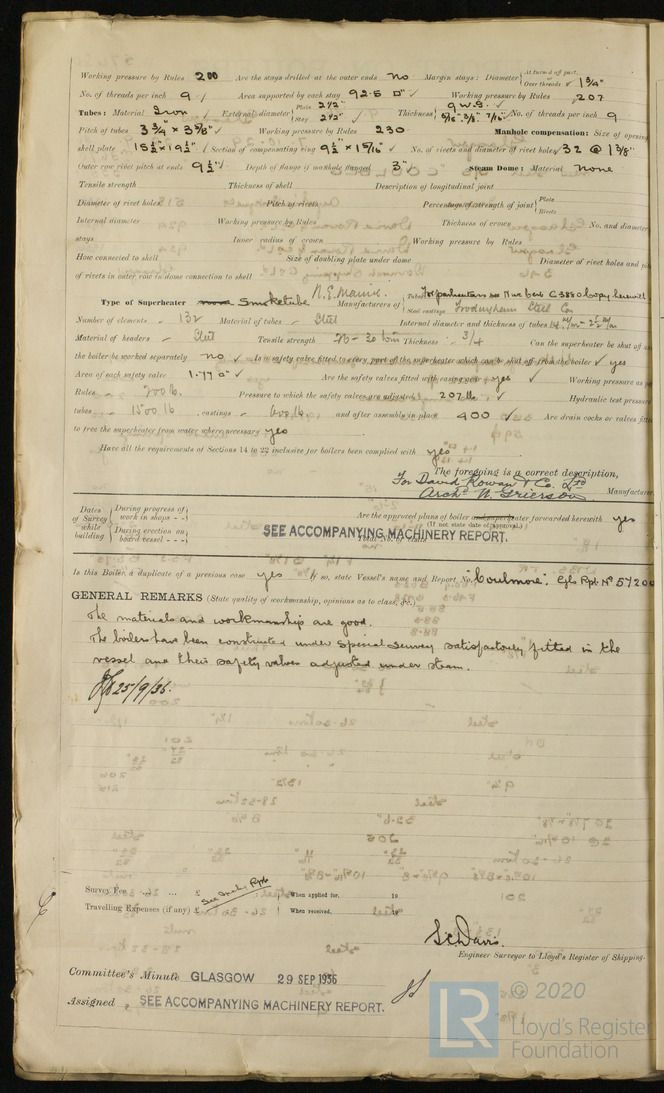 Working pressure by Rules 200 Are the stays drilled at the outer ends No Margin stays: Diameter { At turned off part, or Over threads 1 3/4"
No. of threads per inch 9 Area supported by each stay 92.5 □" Working pressure by Rules 207
Tubes: Material Iron External diameter { Plain 2 1/2" Stay 2 1/2" Thickness { 9 W.G. 5/16" 3/8" 7/16" No. of threads per inch 9
Pitch of tubes 3 3/4 × 3 5/8" Working pressure by Rules 230 Manhole compensation: Size of opening
shell plate 15 1/2 × 19 1/2" Section of compensating ring 9 1/2 × 15/16" No. of rivets and diameter of rivet holes 32 @ 1 3/8"
Outer row rivet pitch at ends 9 1/2" Depth of flange if manhole flanged 3" Steam Dome: Material None
Tensile strength Thickness of shell Description of longitudinal joint
Diameter of rivet holes Pitch of rivets Percentage of strength of joint { Plate Rivets
Internal diameter Working pressure by Rules Thickness of crown No. and diameter
stays Inner radius of crown Working pressure by Rules
How connected to shell Size of doubling plate under dome Diameter of rivet holes and
of rivets in outer row in dome connection to shell
Type of Superheater Smoketube Manufacturers of N.E. Marine. Tubes For particulars see Nwc Cert C3880 Copy herewith
Steel castings Frodingham Steel Co
Number of elements 132 Material of tubes Steel Internal diameter and thickness of tubes
Material of headers Steel Tensile strength 26-30 tons Thickness 3/4 Can the superheater be shut off
the boiler be worked separately No Is a safety valve fitted to every part of the superheater which can be shut off from the boiler yes
Area of each safety valve 1.77 □" Are the safety valves fitted with easing gear yes Working pressure as
Rules 200 lb. Pressure to which the safety valves are adjusted 207 lb Hydraulic test pressure
tubes 1500 lb, castings 600 lb and after assembly in place 400 Are drain cocks or valves fitted
to free the superheater from water where necessary yes
Have all the requirements of Sections 14 to 22 inclusive for boilers been complied with yes
The foregoing is a correct description,
For David Rowan & Co. Ltd
Archd. W. Grierson Manufacturer.
Dates of Survey while building { During progress of work in shops - - During erection on board vessel - - -
Are the approved plans of boiler and superheater forwarded herewith yes
(If not state date of approval.)
SEE ACCOMPANYING MACHINERY REPORT.
Total No. of visits
Is this Boiler a duplicate of a previous case yes If so, state Vessel's name and Report No. "Coulmore". Gls Rpt. No 57200
GENERAL REMARKS (State quality of workmanship, opinions as to class, &c.)
The materials and workmanship are good.
The boilers have been constructed under special survey satisfactorily fitted in the
vessel and their safety valves adjusted under steam.
25/9/36.
Survey Fee ... ... £ See Mchy Rpt. When applied for, 19
Travelling Expenses (if any) £ When received, 19
S. C. Davis.
Engineer Surveyor to Lloyd's Register of Shipping.
Committee's Minute GLASGOW 29 SEP 1936
Assigned SEE ACCOMPANYING MACHINERY REPORT.
LR © 2020
Lloyd's Register
Foundation